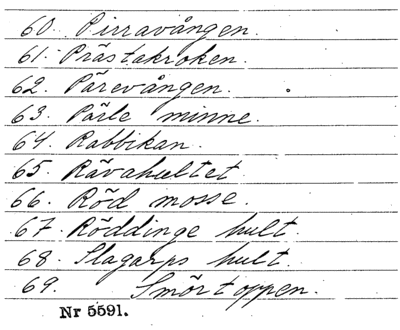 60. Pirravången.
61. Prästakroken.
62. Pärevången.
63. Pärle minne.
64. Rabbikan.
65. Rävahultet.
66. Röd mosse.
67. Röddinge hult.
68. Slagarps hult.
69. Smörtoppen.
Nr 5591.